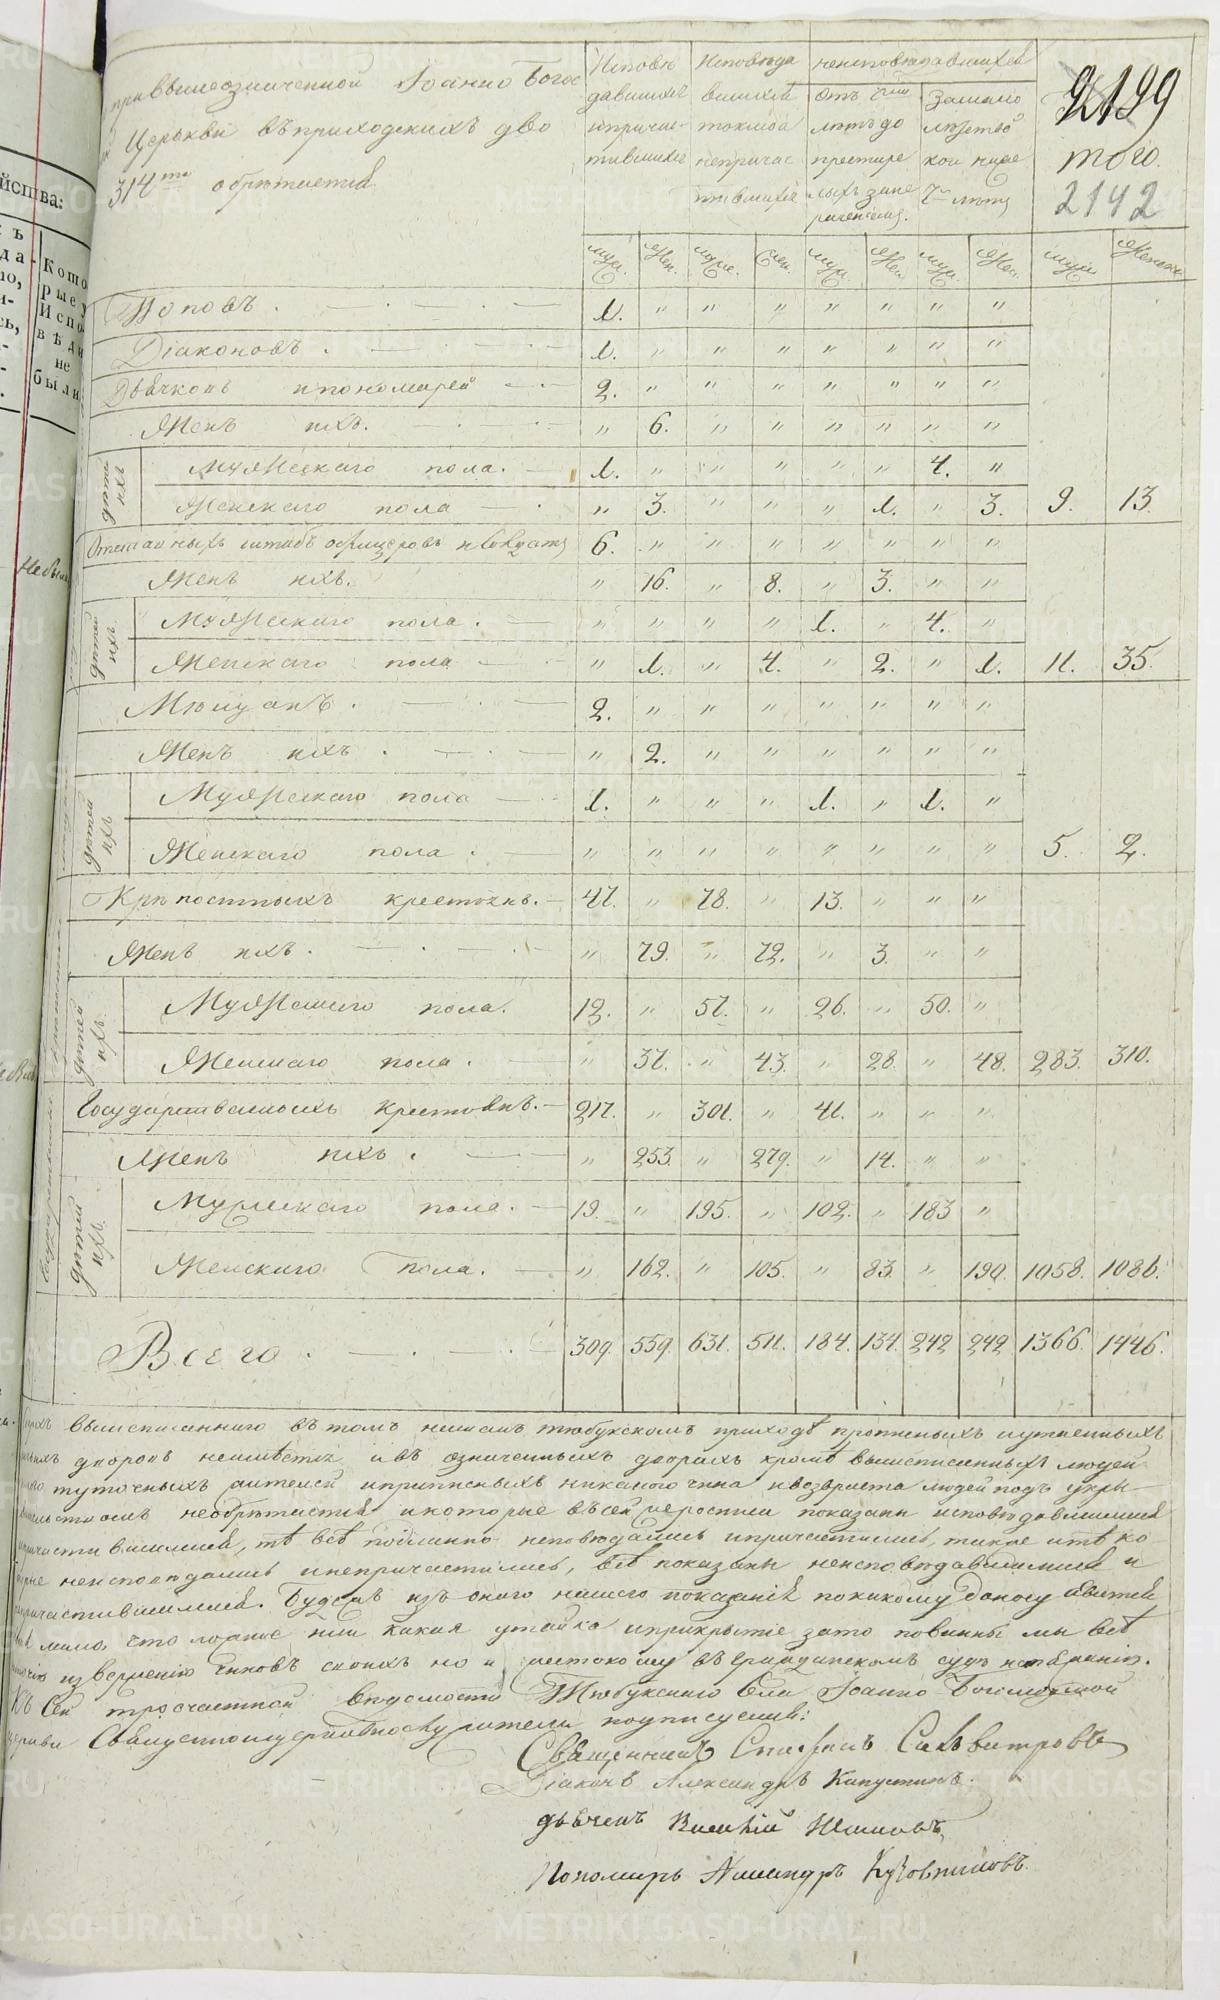 при вышеозначенной Іоанно Богос
Церькви въ приходскихъ дво
314ти обрѣтается
Исповѣ
давшихся
и причас-
тившихся
Исповѣда
вшихся
токмо а
непричас
тившихся
неисповѣдавшихся
отъ 7ми
лѣтъ до
престаре
лыхъ за не
рачениемъ.
За мало
лѣтст
вом ниже
7ми лѣтъ
2199
того.
2142
муж. Жен. муж. Жен. муж. Жен. муж. Жен. мужи Женски
Поповъ . 1. " " " " " " "
Діаконовъ . 1. " " " " " " "
Дьячковъ и пономарей 2. " " " " " " "
Женъ ихъ. " 6. " " " " " "
дѣтей ихъ
Мужескаго пола. 1. " " " " " 4. "
Женскаго пола " 3. " " " 1. " 3. 9. 13.
Отставныхъ штабъ офицеровъ и солдатъ 6. " " " " " " "
Женъ ихъ. " 16. " 8. " 3. " "
дѣтей ихъ
Мужескаго пола. " " " " 1. " 4. "
Женскаго пола " 1. " 4. " 2. " 1. 11. 35.
Мѣщанъ . 2. " " " " " " "
Женъ ихъ . " 2. " " " " " "
дѣтей ихъ
Мужескаго пола 1. " " " 1. " 1. "
Женскаго пола . " " " " " " " " 5. 2.
Крѣпостныхъ крестьянъ. 47. " 78. " 13. " " "
Женъ ихъ . " 79. " 72. " 3. " "
дѣтей ихъ
Мужескаго пола. 12. " 57. " 26. " 50. "
Женскаго пола . " 37. " 43. " 28. " 48. 283. 310.
Государственныхъ крестьянъ. 217. " 301. " 41. " " "
Женъ ихъ . " 253. " 279. " 14. " "
дѣтей ихъ
Мужескаго пола. 19. " 195. " 102. " 183 "
Женскаго пола. " 162. " 105. " 83. " 190. 1058. 1086.
Всего . 309. 559. 631. 511. 184. 134. 242 242 1366. 1446.
вышеписаннаго въ томъ нашемъ тюбукскомъ приходѣ прописныхъ и утаенныхъ
дворовъ неимѣется и въ означенныхъ дворахъ кромѣ вышеписенныхъ людей
туточныхъ жителей и приписныхъ никакого чина и возвраста людей подъ укры
необрѣтается и которые въ сей росписи показаны исповѣдавшимися
тѣ всѣ подлинно исповѣдались и причастились, также и тѣ ко
неисповѣдались и непричастились, всѣ показаны неисповѣдавшимися и
непричастившимися. Будеже изъ оного нашего показанія по какому доносу явится
мимо, что ложное или какая утайка и прикрытие за то повинны мы всѣ
изверженію чиновъ своихъ но и жестокому въ гражданскомъ судѣ истязанію.
Къ Сей трочастной вѣдомости Тюбукскаго села Іоанно Богословской
церкви Священноцерковнослужители подписуемся:
Священникъ Стефанъ Сильвестровъ
Діаконъ Александръ Капустинъ.
дьячекъ Василій
Пономарь Александръ Кузовниковъ.
йства:
Кото
рые у
Испо
вѣди
не
были
METRIKI.GASO-URAL.RU